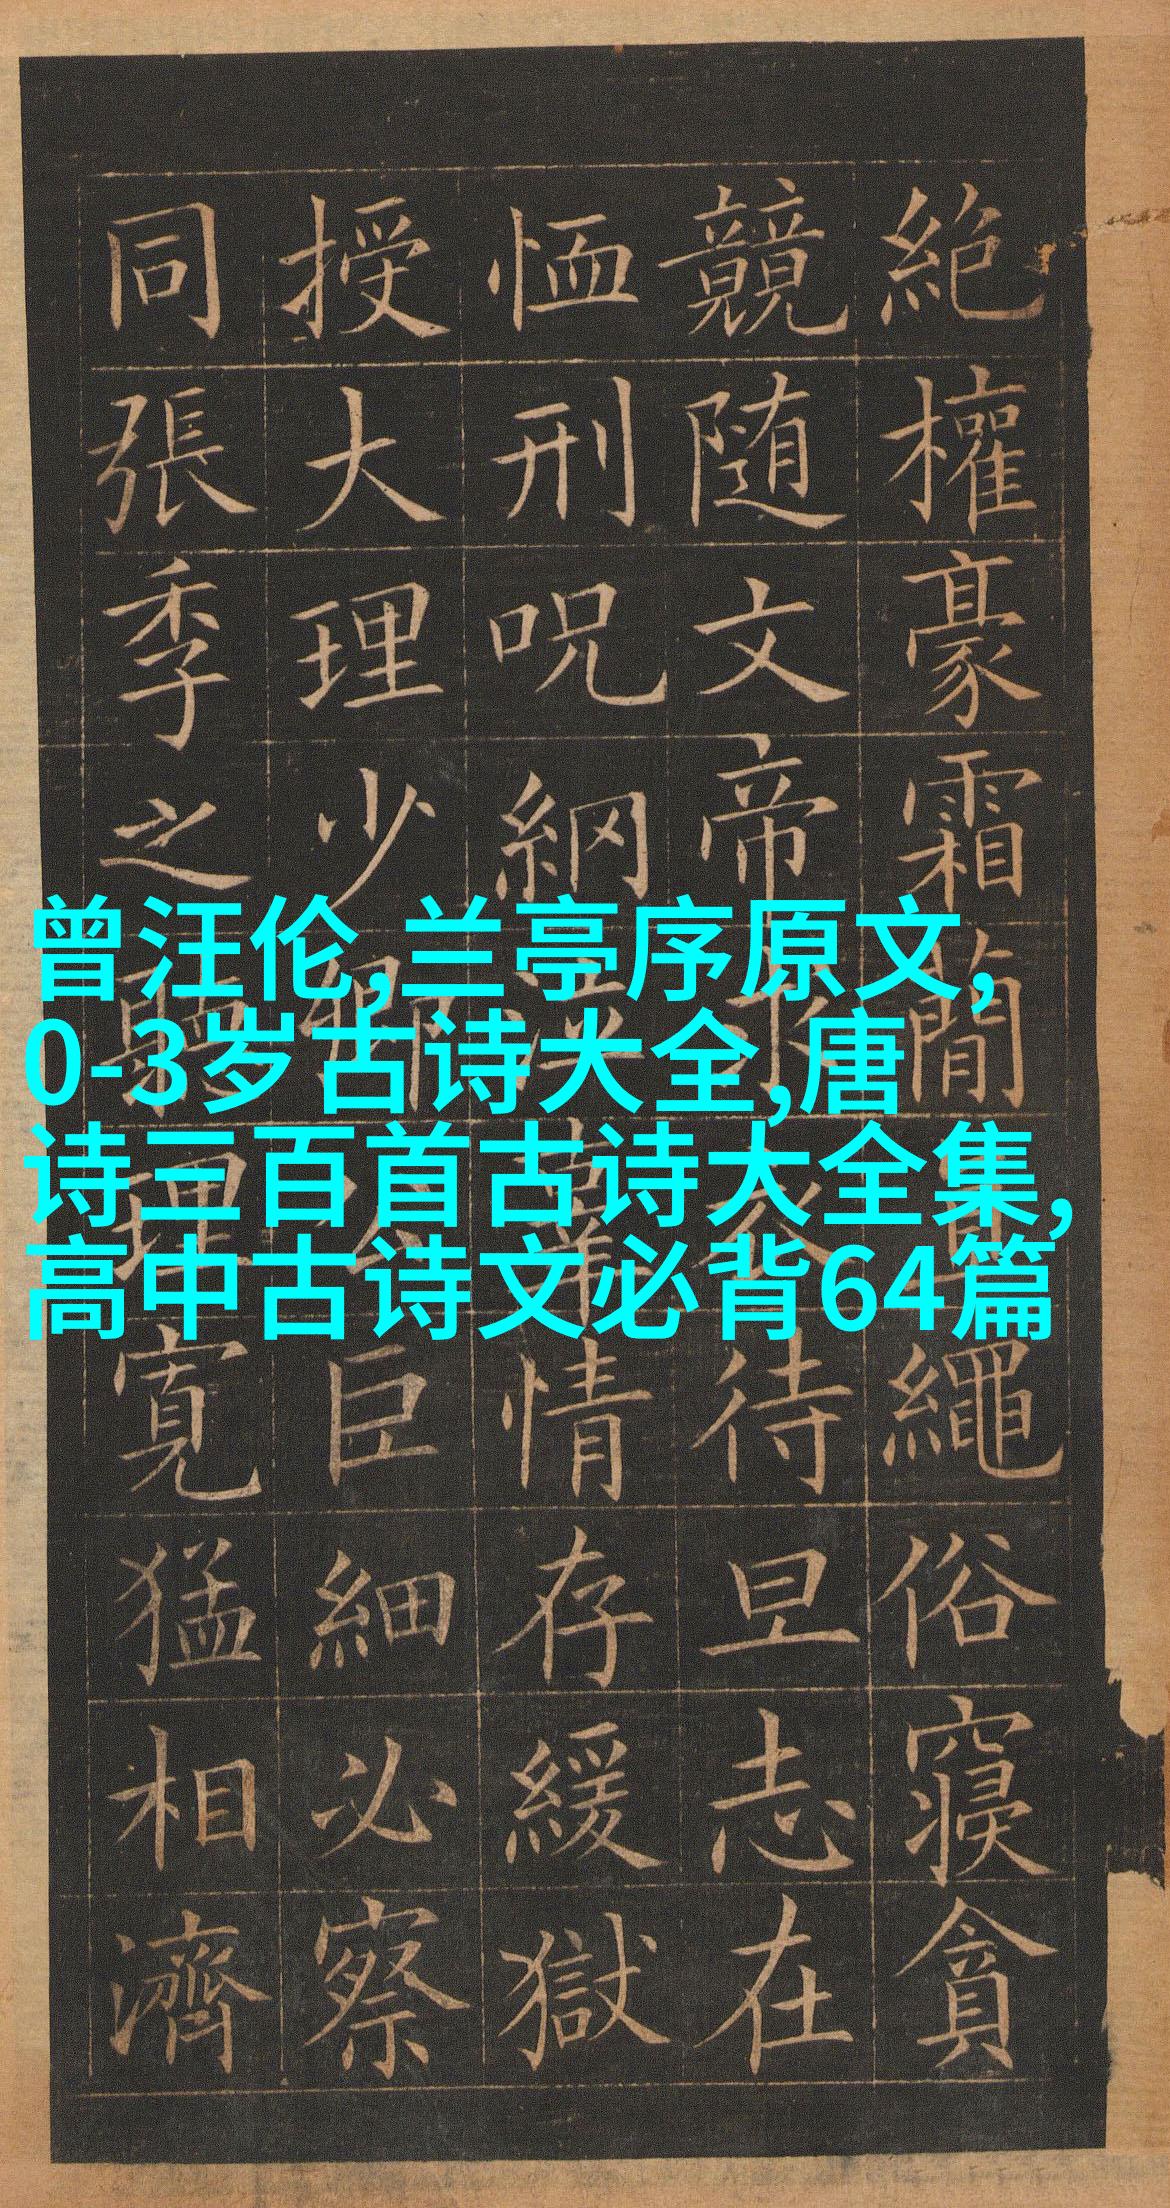 曾汪伦,兰亭序原文,
0-3岁古诗大全,唐
诗三百首古诗大全集,
高中古诗文必背64篇
絶權豪霜簡繩俗寢貪
競随文帝待旦志在
恤刑呪網辜情存緩獄
授大理少卿公巨細必察
同張季之聽理寬猛相濟